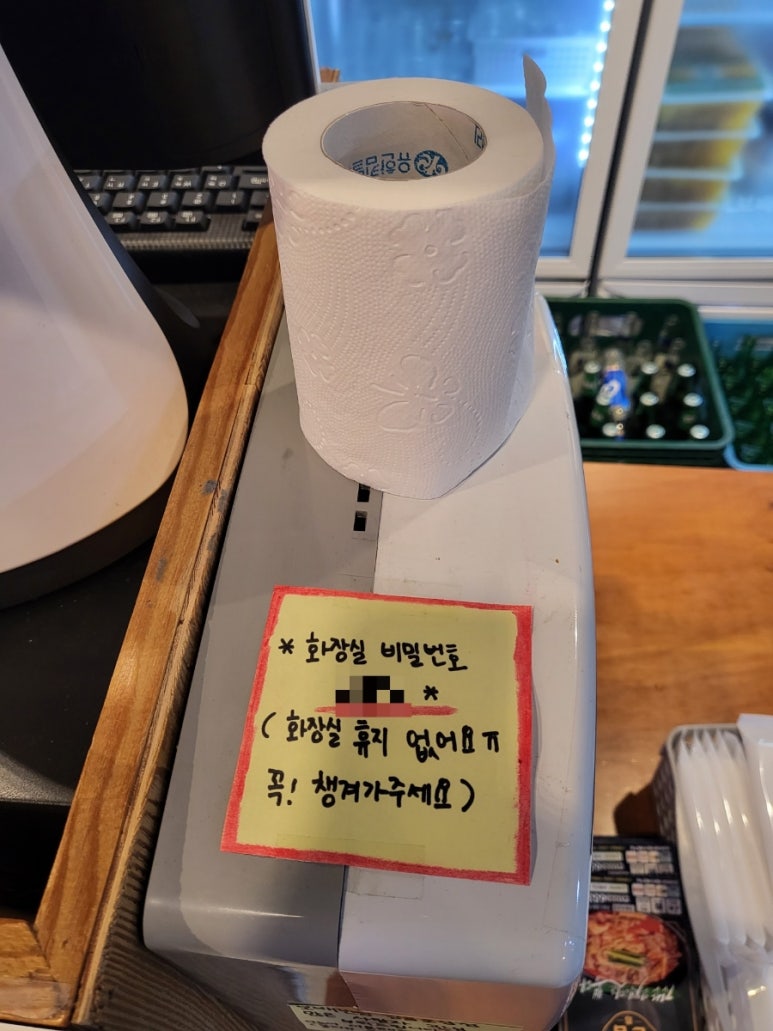 유한킴벌리
* 화장실 비밀번호
*
( 화장실 휴지 없어요ㅠ
꼭! 챙겨가주세요)